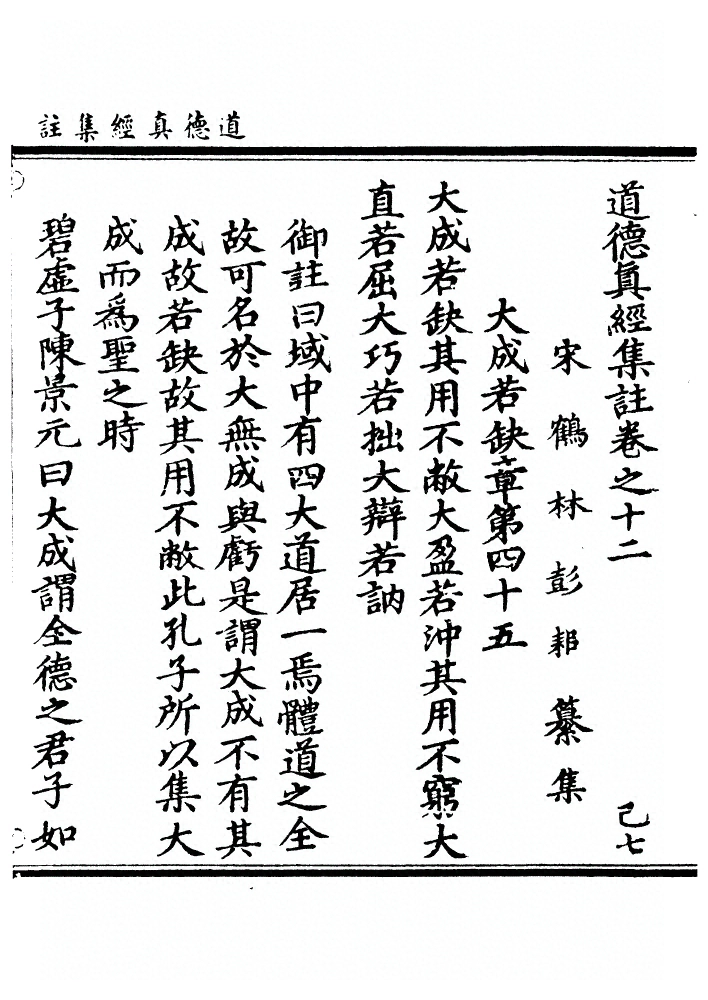 道德真經集註
道德真經集註卷之十二
己七
宋鶴林彭耜纂集
大成若缺章第四十五
大成若缺其用不敝大盈若沖其用不窮大
直若屈大巧若拙大辯若訥
御註曰域中有四大道居一焉體道之全
故可名於大無成與虧是謂大成不有其
成故若缺故其用不敝此孔子所以集大
成而為聖之時
碧虛子陳景元曰大成謂全德之君子如